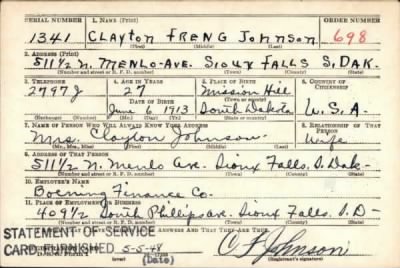 SERIAL NUMBER 1. NAME (Print) ORDER NUMBER
1341 Clayton Freng Johnson 698
(First) (Middle) (Last)
2. ADDRESS (Print)
511½ N. Menlo-Ave. Sioux Falls S. Dak.
(Number and street or R. F. D. number) (Town) (County) (State)
3. TELEPHONE 4. AGE IN YEARS 5. PLACE OF BIRTH 6. COUNTRY OF CITIZENSHIP
2797J 27 Mission Hill
DATE OF BIRTH (Town or county)
June 6, 1913 South Dakota U.S.A.
(Exchange) (Number) (Mo.) (Day) (Yr.) (State or country)
7. NAME OF PERSON WHO WILL ALWAYS KNOW YOUR ADDRESS 8. RELATIONSHIP OF THAT PERSON
Mrs. Clayton Johnson Wife
(Mr., Mrs., Miss) (First) (Middle) (Last)
9. ADDRESS OF THAT PERSON
511½ N. Menlo Ave. Sioux Falls. S. Dak-
(Number and street or R. F. D. number) (Town) (County) (State)
10. EMPLOYER'S NAME
Finance Co.
11. PLACE OF EMPLOYMENT OR BUSINESS
409½ South Phillips av. Sioux Falls. S. D-
(Number and street or R. F. D. number) (Town) (County) (State)
ANSWERS AND THAT THEY ARE TRUE.
STATEMENT OF SERVICE
CARD FURNISHED 5-5-48
(Date)
C F Johnson